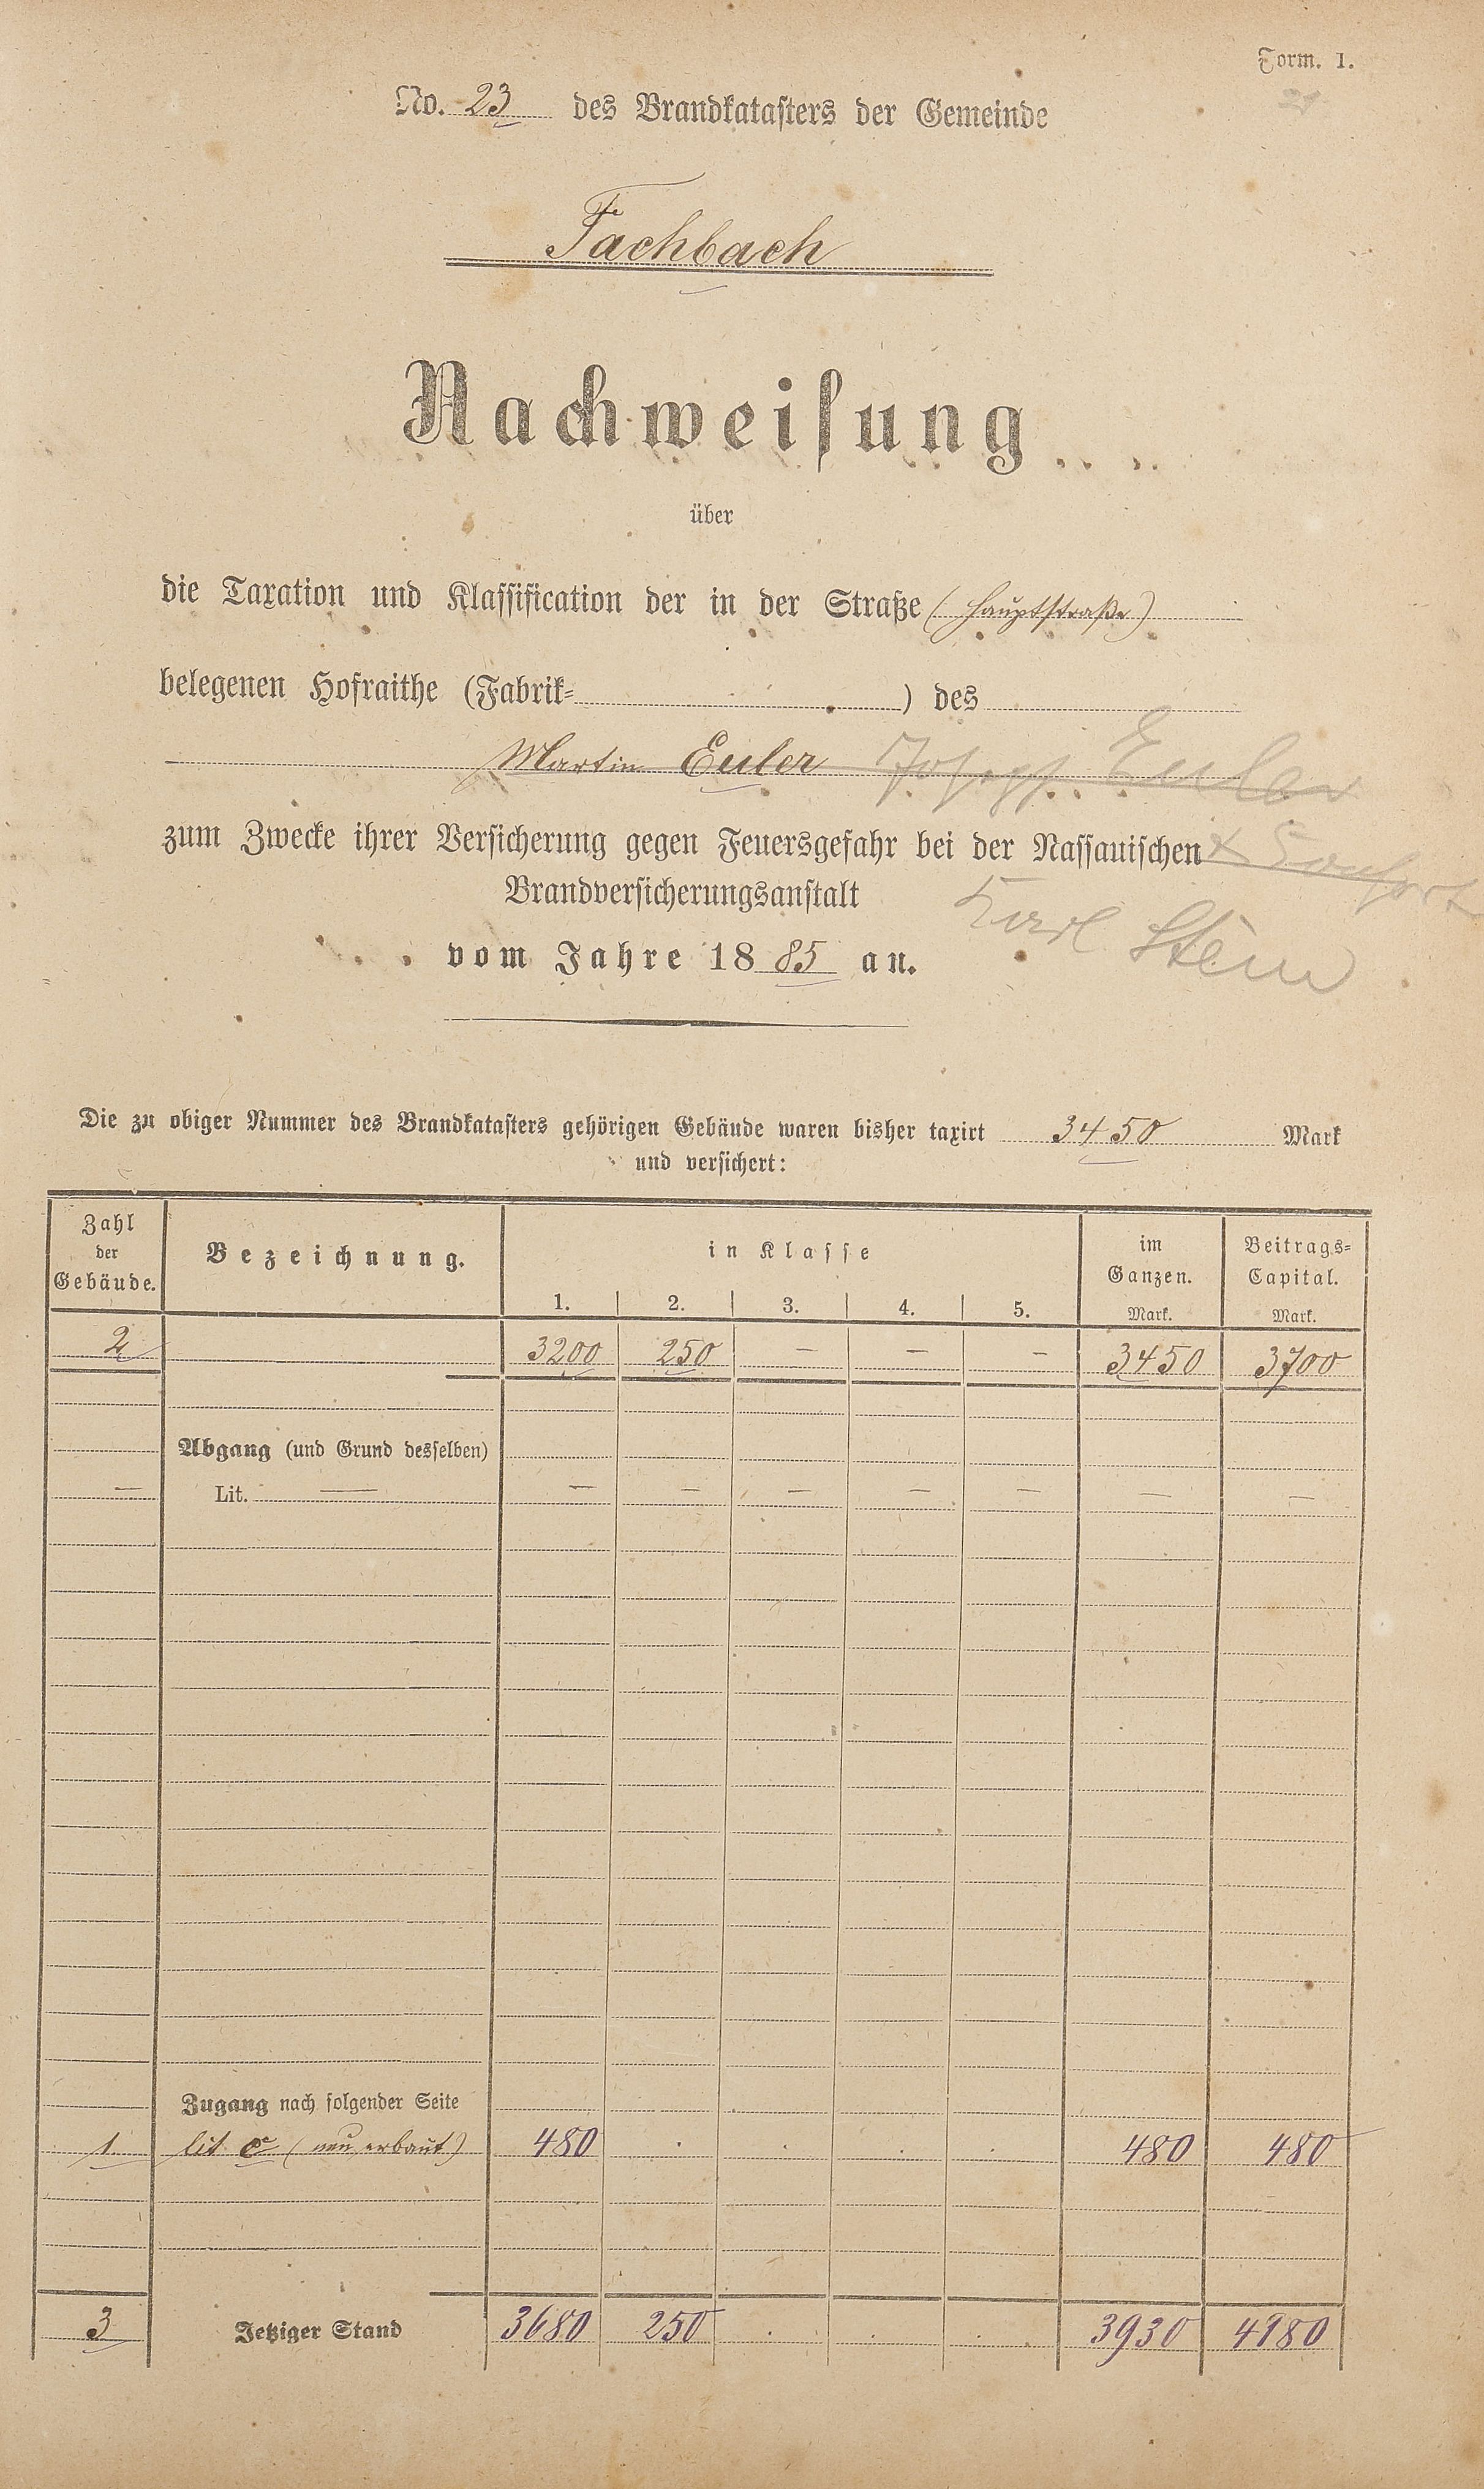 Form. 1.
No. 23 des Brandkatasters der Gemeinde
21
Fachbach
Nachweisung
über
die Taxation und Klassification der in der Straße (Hauptstraße)
belegenen Hofraithe (Fabrik- ) des
Martin Euler Joseph Euler
zum Zwecke ihrer Versicherung gegen Feuersgefahr bei der Nassauischen
Brandversicherungsanstalt
Karl Stein
vom Jahre 1885 an.
Die zu obiger Nummer des Brandkatasters gehörigen Gebäude waren bisher taxirt 3450 Mark
und versichert:
Zahl der Gebäude. Bezeichnung. in Klasse im Ganzen. Beitrags-Capital.
1. 2. 3. 4. 5. Mark. Mark.
2 3200 250 — — — 3450 3700
Abgang (und Grund desselben)
— Lit. — — — — — — — —
Zugang nach folgender Seite
1 lit c (neu erbaut) 480 . . . . 480 480
3 Jetziger Stand 3680 250 . . . 3930 4180